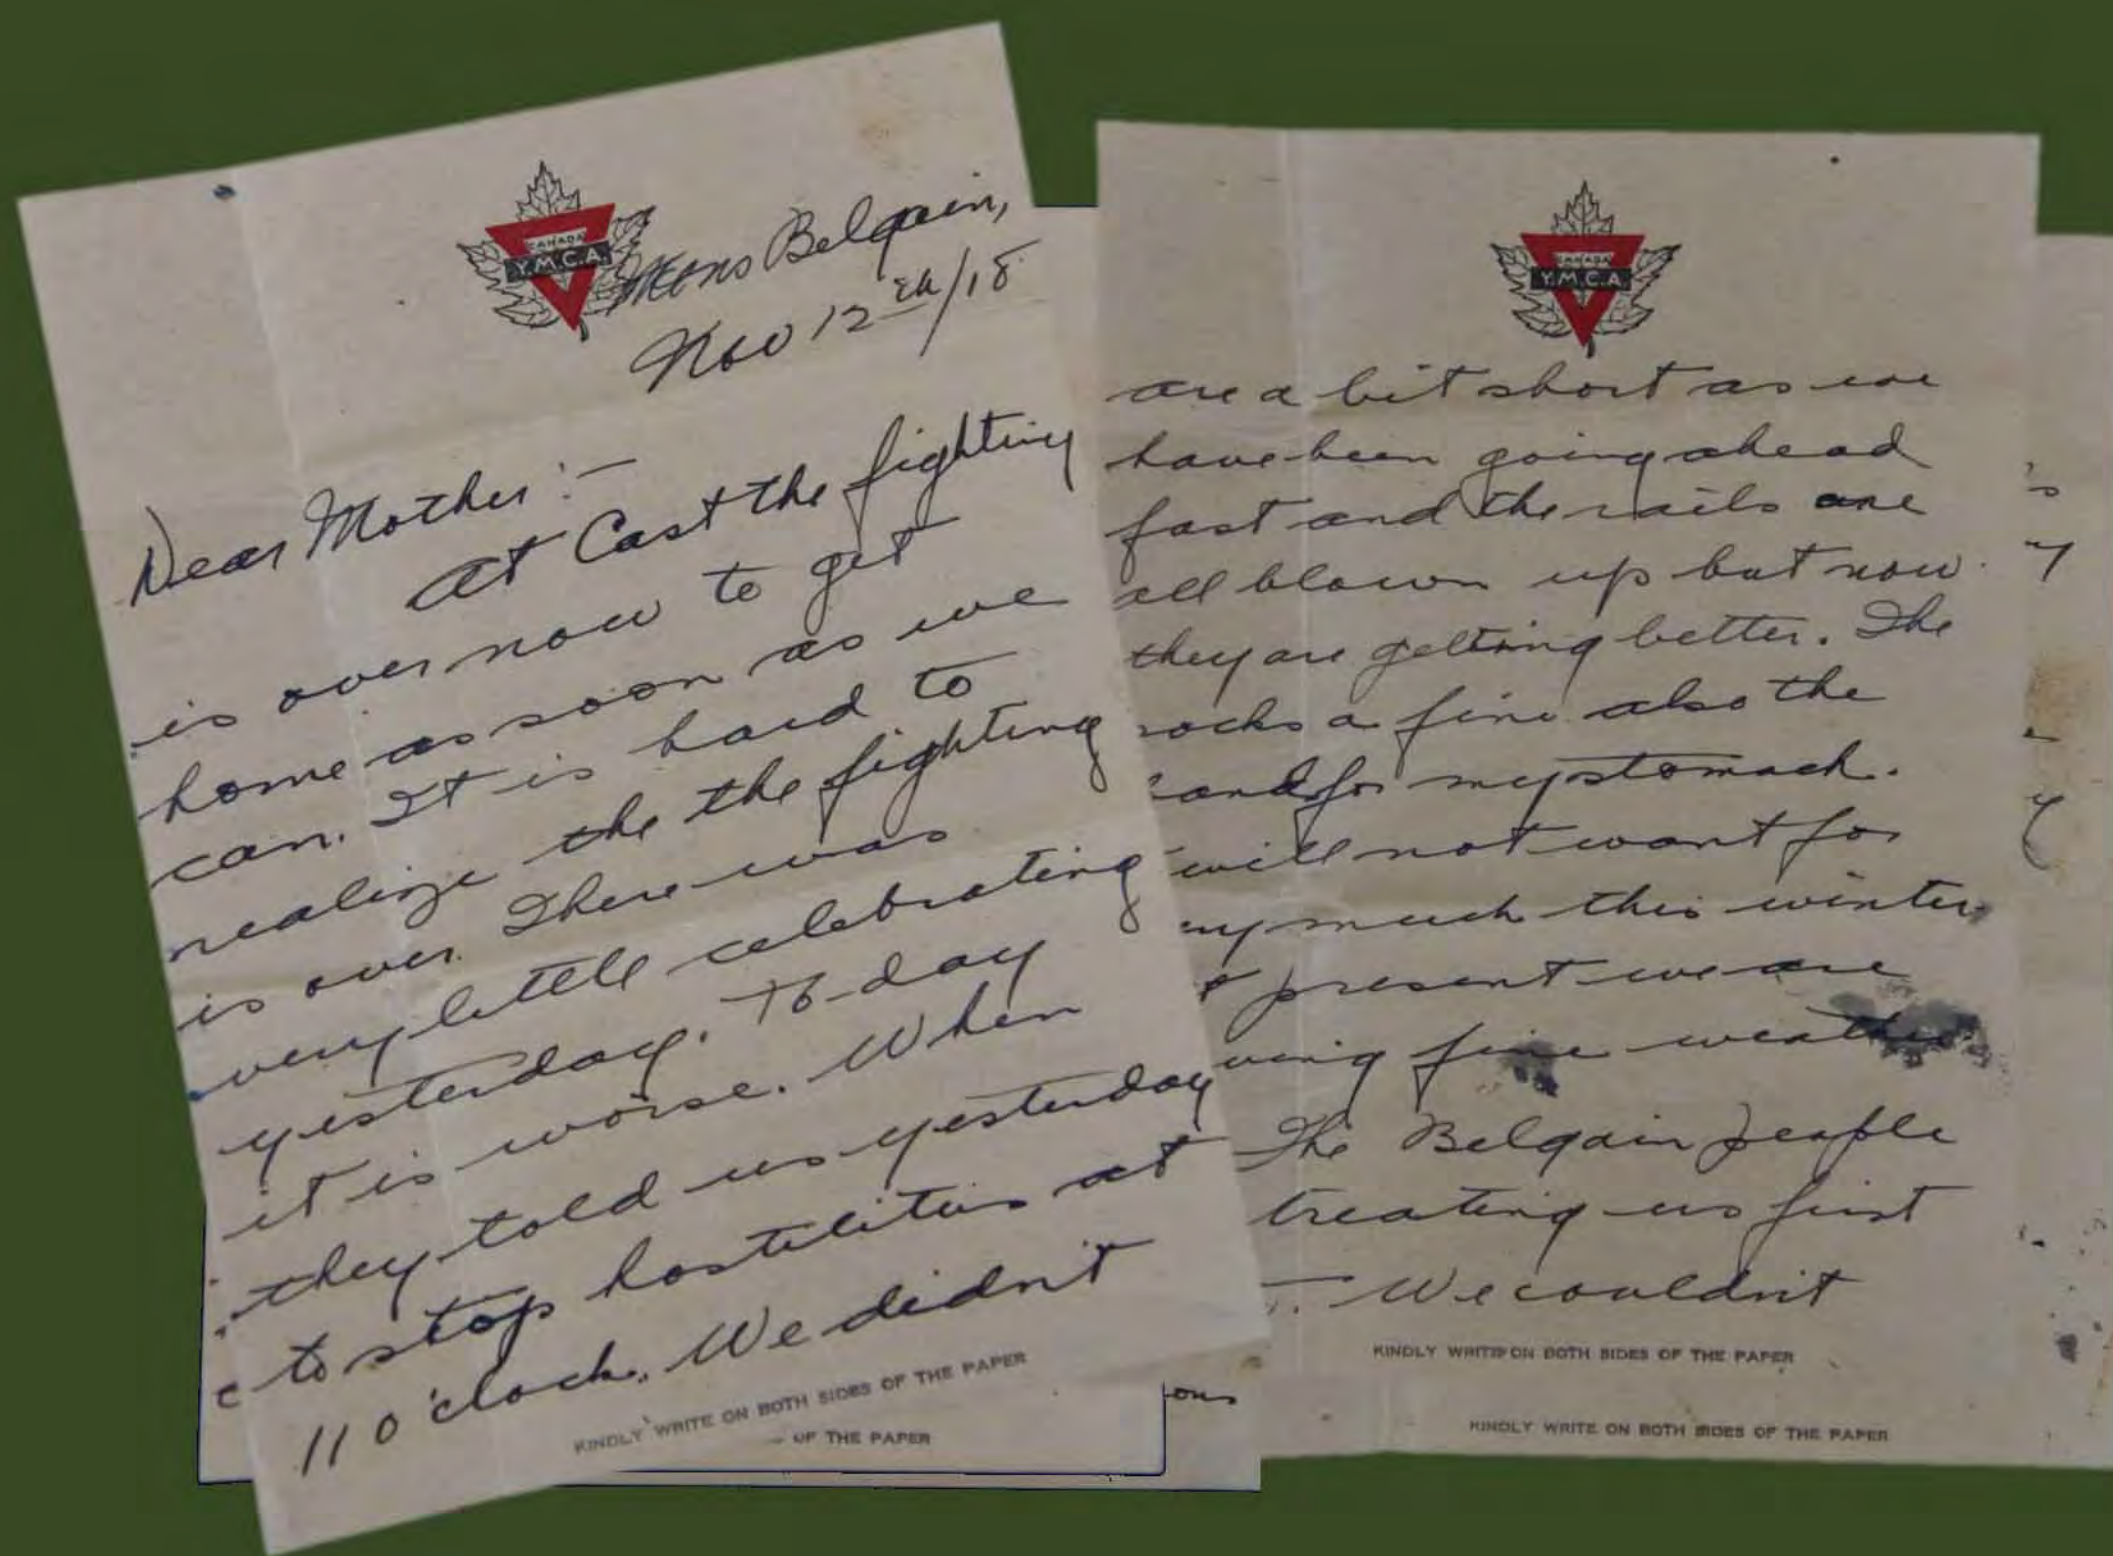 CANADA
Y.M.C.A.
Mons Belgain,
Nov 12th/18
Dear Mother:-
At Last the fighting
is over now to get
home as soon as we
can. It is hard to
realize the the fighting
is over. There was
very little celebrating
yesterday. To-day
it is worse. When
they told us yesterday
to stop hostilities at
11 o'clock. We didn't
KINDLY WRITE ON BOTH SIDES OF THE PAPER
OF THE PAPER
CANADA
Y.M.C.A.
are a bit short as we
have been going ahead
fast and the rails are
all blown up but now
they are getting better. The
ocks a fine also the
band for my stomach.
will not want for
ny much this winter
t present we are
ving fine weather
The Belgain people
treating us first
We couldn't
KINDLY WRITE ON BOTH SIDES OF THE PAPER
KINDLY WRITE ON BOTH SIDES OF THE PAPER
ons